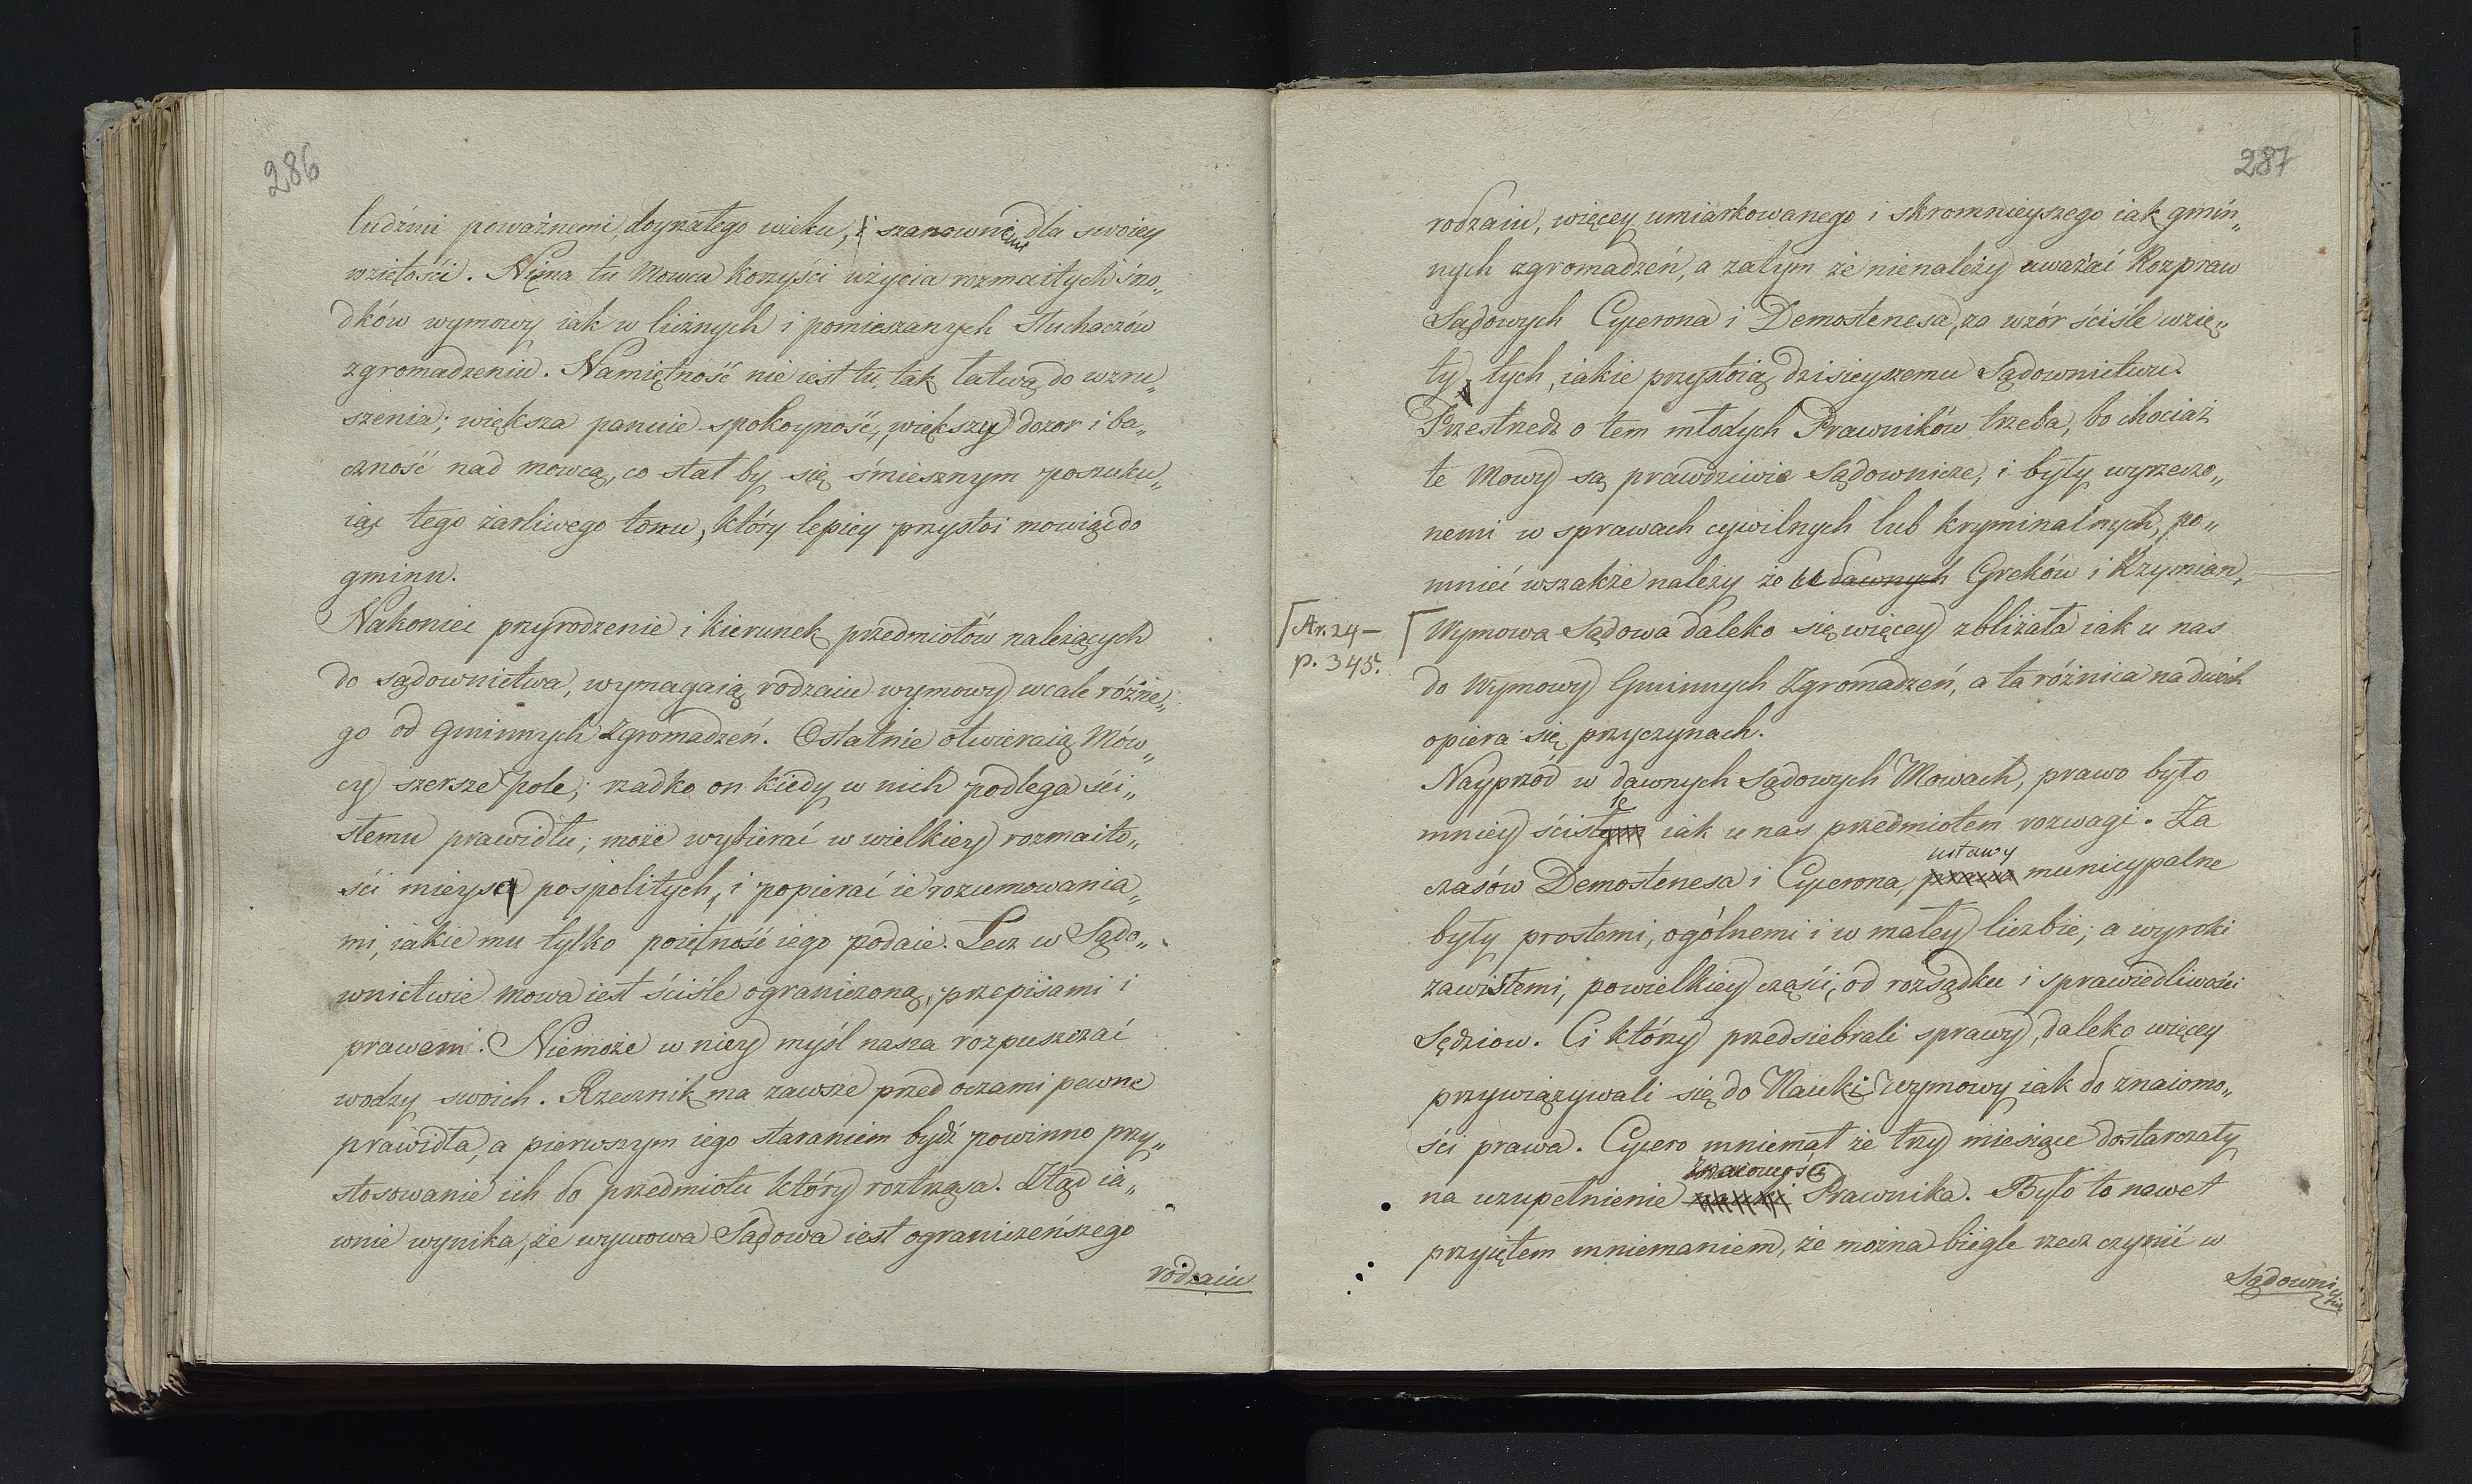 286
ludźmi poważnemi, doyrzałego wieku, i szanownemi dla swoiey
wziętości. Nima tu Mowca korzyści użycia rozmaitych śro„
dków wymowy iak w licznych i pomieszanych Słuchaczów
zgromadzeniu. Namiętność nie iest tu, tak łatwą do wzru„
szenia; większa panuie spokoyność, większy dozor i ba„
czność nad mowcą, co stał by się śmiesznym poszuku„
iąc tego żarliwego tonu, który lepiey przystoi mowiąc do
gminu.
Nakoniec przyrodzenie i kierunek przedmiotów należących
do sądownictwa, wymagaią rodzaiu wymowy wcale różne„
go od Gminnych Zgromadzeń. Ostatnie otwieraią Mów„
cy szersze pole; rzadko on kiedy w nich podlega ści„
słemu prawidłu; może wybierać w wielkiey rozmaito„
ści mieysc pospolitych, i popierać ie rozumowania„
mi, iakie mu tylko poiętność iego podaie. Lecz w Sądo„
wnictwie mowa iest ściśle ograniczoną, przepisami i
prawami. Niemoże w niey myśl nasza rozpuszczać
wodzy swoich. Rzecznik ma zawsze przed oczami pewne
prawidła, a pierwszym iego staraniem bydź powinno przy„
stosowanie ich do przedmiotu który roztrząsa. Ztąd ia„
wnie wynika, że wymowa Sądowa iest ograniczeńszego
rodzaiu
287
rodzaiu, więcey umiarkowanego i skromnieyszego iak gmin„
nych zgromadzeń, a zatym że nienależy uważać Rozpraw
Sądowych Cycerona i Demostenesa, za wzór ściśle wzię„
ty, tych, iakie przystoią dzisieyszemu Sądownictwu.
Przestrzedz o tem młodych Prawników trzeba, bo chociaż
te Mowy są prawdziwie Sądownicze, i były wyrzeczo„
nemi w sprawach cywilnych lub kryminalnych, po„
mnieć wszakże należy że u dawnych Greków i Rzymian,
Ar. 24 –
p. 345.
Wymowa Sądowa daleko się więcey zbliżała iak u nas
do Wymowy Gminnych Zgromadzeń, a ta różnica na dwóch
opiera się przyczynach.
Nayprzód w dawnych Sądowych Mowach, prawo było
mniey ściśle iak u nas przedmiotem rozwagi. Za
ustawy
czasów Demostenesa i Cycerona, prawa municypalne
były prostemi, ogólnemi i w małey liczbie; a wyroki
zawisłemi, powielkiey części, od rozsądku i sprawiedliwości
Sędziow. Ci którzy przedsiebrali sprawy, daleko więcey
przywiązywali się do Nauki Wymowy iak do znaiomo„
ści prawa. Cycero mniemał że trzy miesiące dostarczały
Znaiomości
na uzupełnienie nauki Prawnika. Było to nawet
przyiętem mniemaniem, że można biegle rzecz czynić w
Sądowni
ctwie